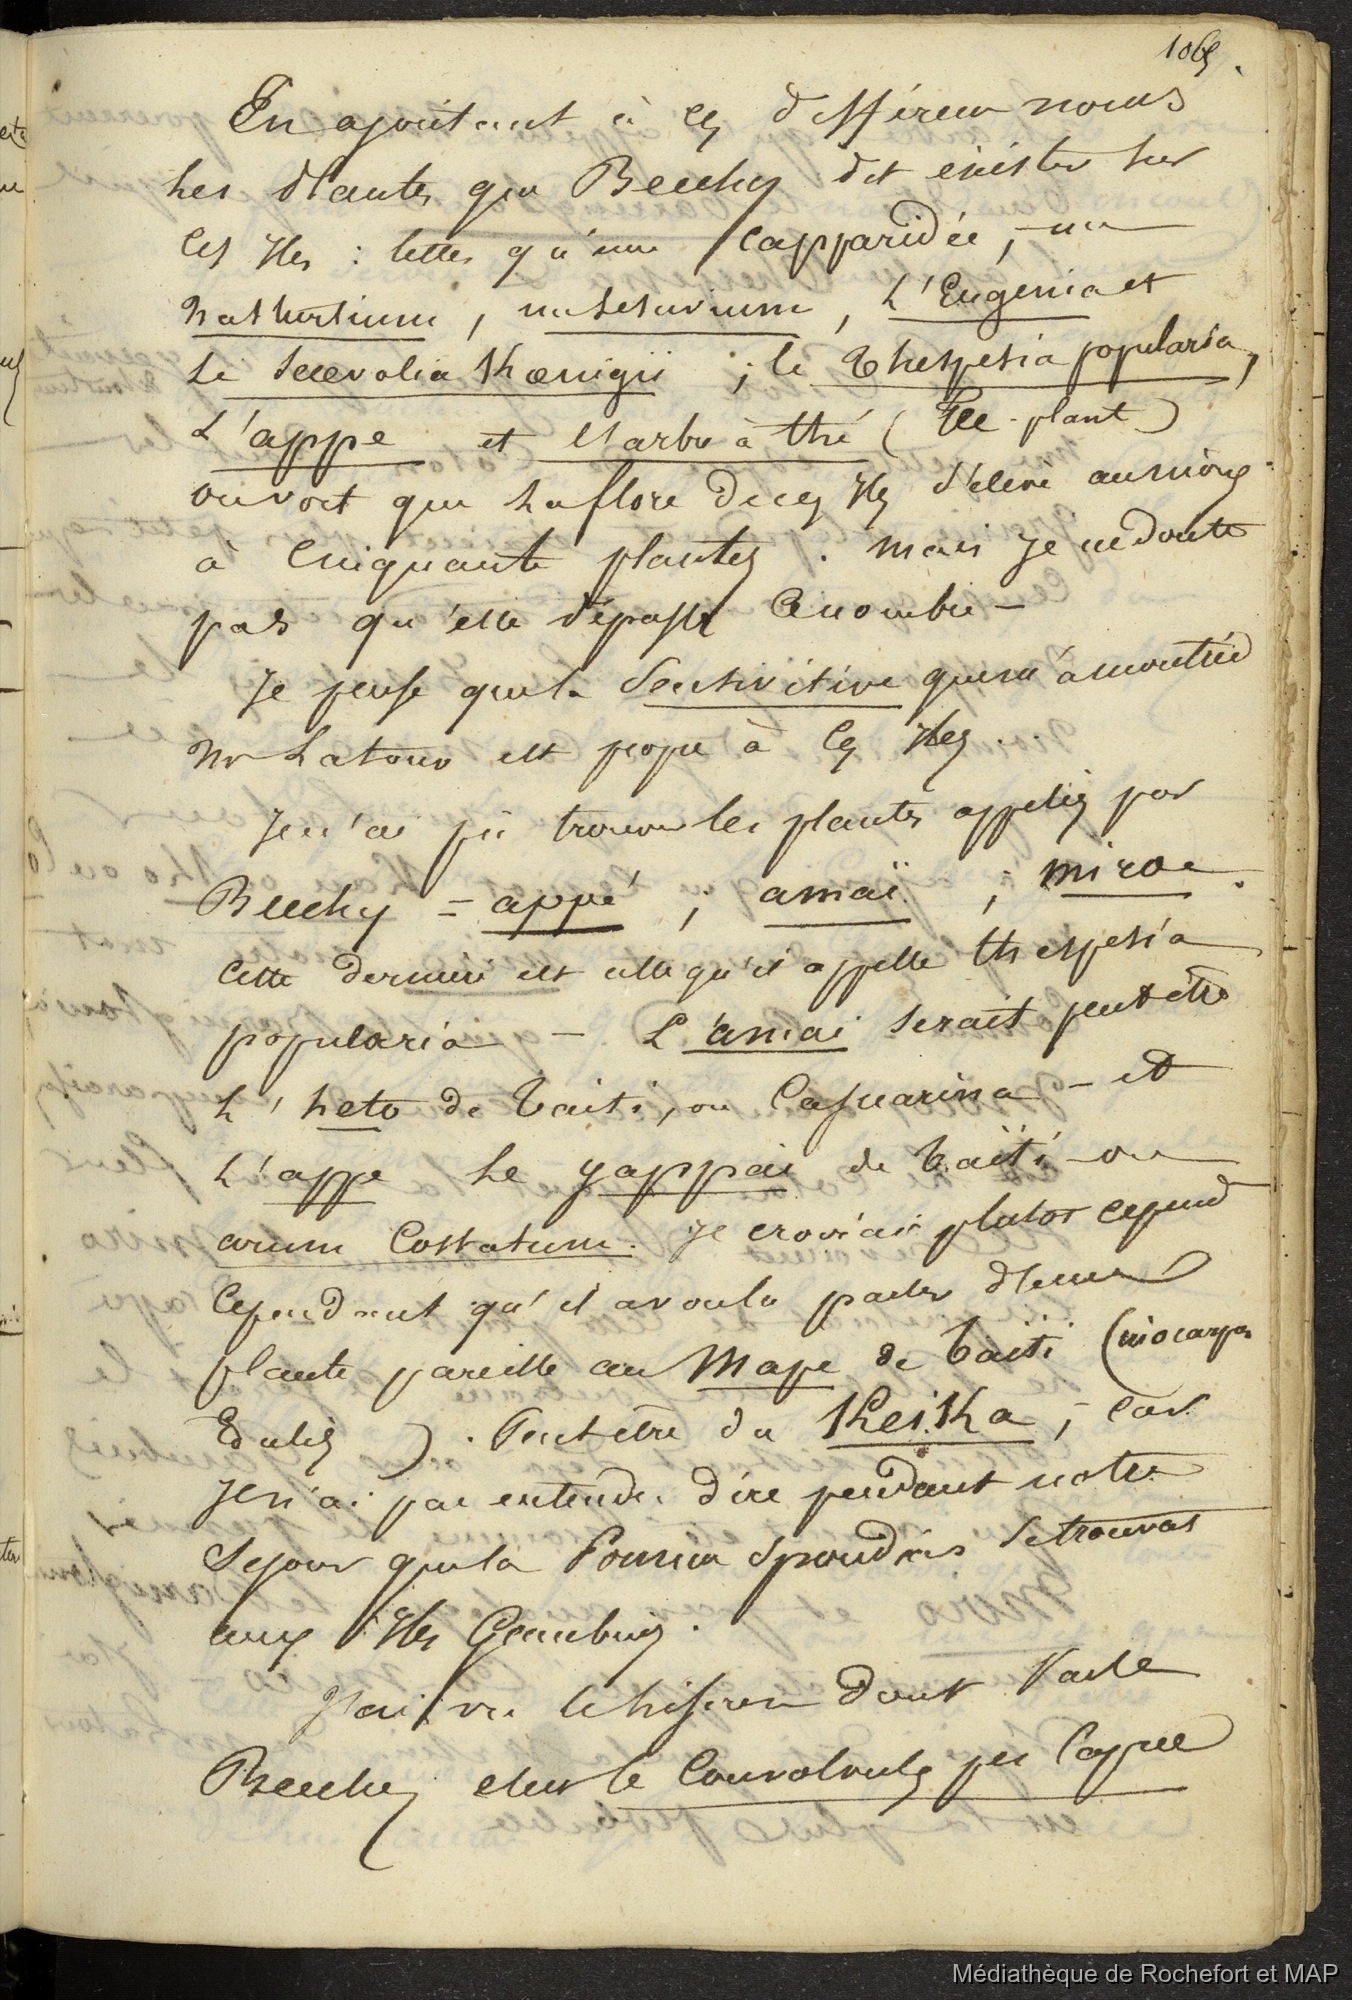 1065.
En ajoutant à ces différens noms
les plantes que Beechey dit exister sur
ces Iles : telles qu'une Capparidée, un
nasturtium, un sesuvium, L'Eugenia et
le Scœvolia Kœnigii ; le Thespesia popularia,
L'appe et l'arbre à thé (Tee-plant)
on voit que la flore de ces Iles s'élève au moins
à cinquante plantes. mais je ne doute
pas qu'elle dépasse ce nombre -
Je pense que la Sensivitive que m'a montrée
Mr Latour est propre à ces Iles..
Je n'ai pû trouver les plantes appelées par
Beechey = appé ; amaï ; miroe.
cette dernière est celle qu'il appelle thespesia
popularia - L'amai serait peut être
l'heto de Taiti, ou Casuarina - et
L'appe le yappai de Taïti ou
arum Costatum. Je croirais plutot cepend
cependant qu'il a voulu parler d'une
plante pareille au Mape de Taïti (inocarpus
Edulis). Peut être du KeiKa ; car
je n'ai pas entendu dire pendant notre
séjour que la Pomme Spondias se trouvat
aux Iles Gambier.
J'ai vu le hiseron dont Parle
Beechey, c'est le Convolvulus pes Caprœ
Médiathèque de Rochefort et MAP